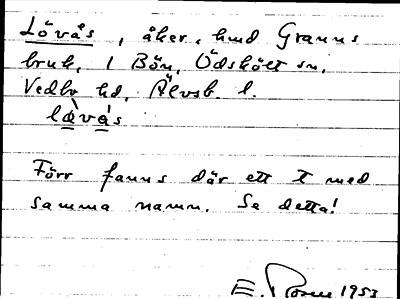 Lövås, åker, hmd Granns
bruk, 1 Bön, Ödskölt sn,
Vedbo hd, Älvsb. l.
lòvás
Förr fanns där ett T med
samma namn. Se detta!
E. 1953